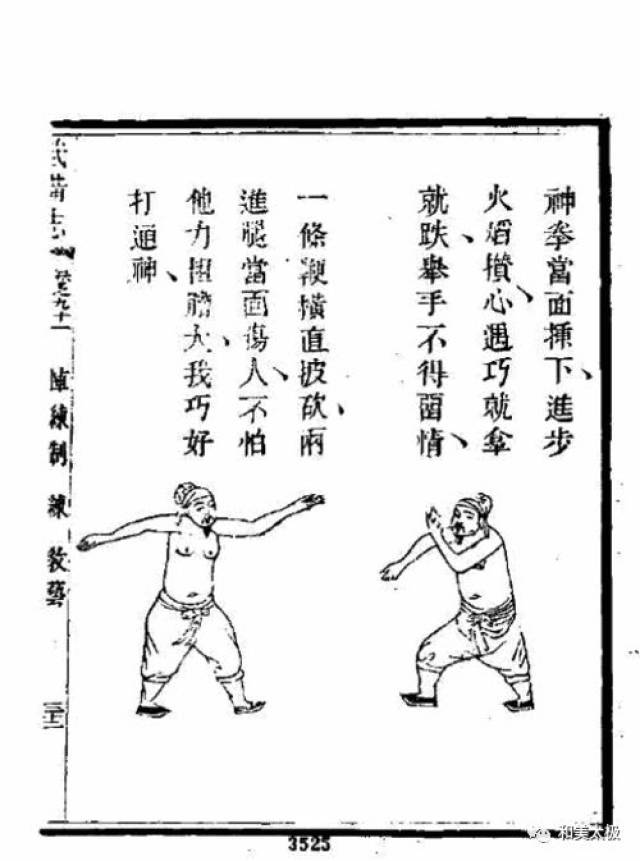 神拳當面揷下、進步
火焰攢心、遇巧就拿
就跌、舉手不得留情、
一條鞭横直披砍、兩
進腿當面傷人、不怕
他力猛膽大、我巧好
打通神、
武備志 卷九十一 陣練制 練 教藝
3525
和美太极